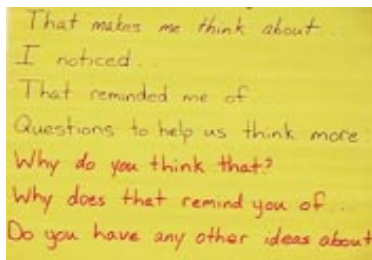 That makes me think about...
I noticed...
That reminded me of...
Questions to help us think more:
Why do you think that?
Why does that remind you of...
Do you have any other ideas about